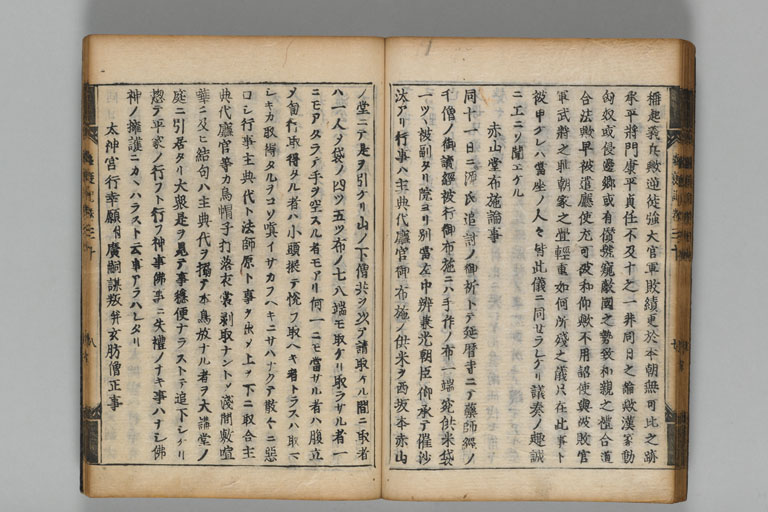 播起義兵敗逆徒強大官軍敗績更於本朝無可比之跡
承平將門康平貞任不及十之一非同日之論歟漢家動
匈奴或侵邊郷或有僭號窺國之勢致和親之禮合道
合法歟早被遣廳使可被和仰歟不用詔使與敗官
軍武將之耻朝家之輕重如何所殘之儀只在此事ト
被申ケレハ當座ノ人々皆此儀ニ同セラレケリ議奏ノ趣誠
ニエニソ聞エケル
赤山堂布施論事
同十一日ニ源氏追討ノ御祈トテ延曆寺ニテ藥師經ノ
千僧ノ御讀經被行御布施ニハ手作ノ布一端宛供米袋
一ツヽ被副タリ院ヨリ別當左中辨兼光朝臣仰承テ催沙
汰アリ行事ハ主典代廳官御布施ノ供米ヲ西坂本赤山
ノ堂ニテ是ヲ引ケリ山ノ下僧共ヲ以テ請取ケル間ニ取者
ハ一人ヲ袋ノ四ツ五ツ布ノ七八端モ取ケリ取ラサル者一
ニモアタラテ手ヲ空スル者モアリ何一ニモ當サル者ハ腹立
ヲ甸行取得タル者ハ小頭振テ悅フ取ヘキ者トラスハ取マ
シキカ取得タルヲコソ嗔イサカフヘキニサハナクテ散々ニ惡
口シ行事主典代ト法師原ト事ヲ出シ上ヲ下ニ取合主
典代廳官等カ烏帽子打落衣裳剥取ナントシ淺間敷喧
嘩ニ及ヒ結句ハ主典代ヲ搦テ本鳥放ナル者ヲ大講堂ノ
庭ニ引居タリ大衆是ヲ見テ事穩便ナラストテ追下シケリ
惣テ平家ノ行フト行フ神事佛事ニ失權ノナキ事ハナシ佛
神ノ擁護ニカヽハラスト云事アラハレタリ
太神宮行幸願付廣嗣謀叛幷玄昉僧正事